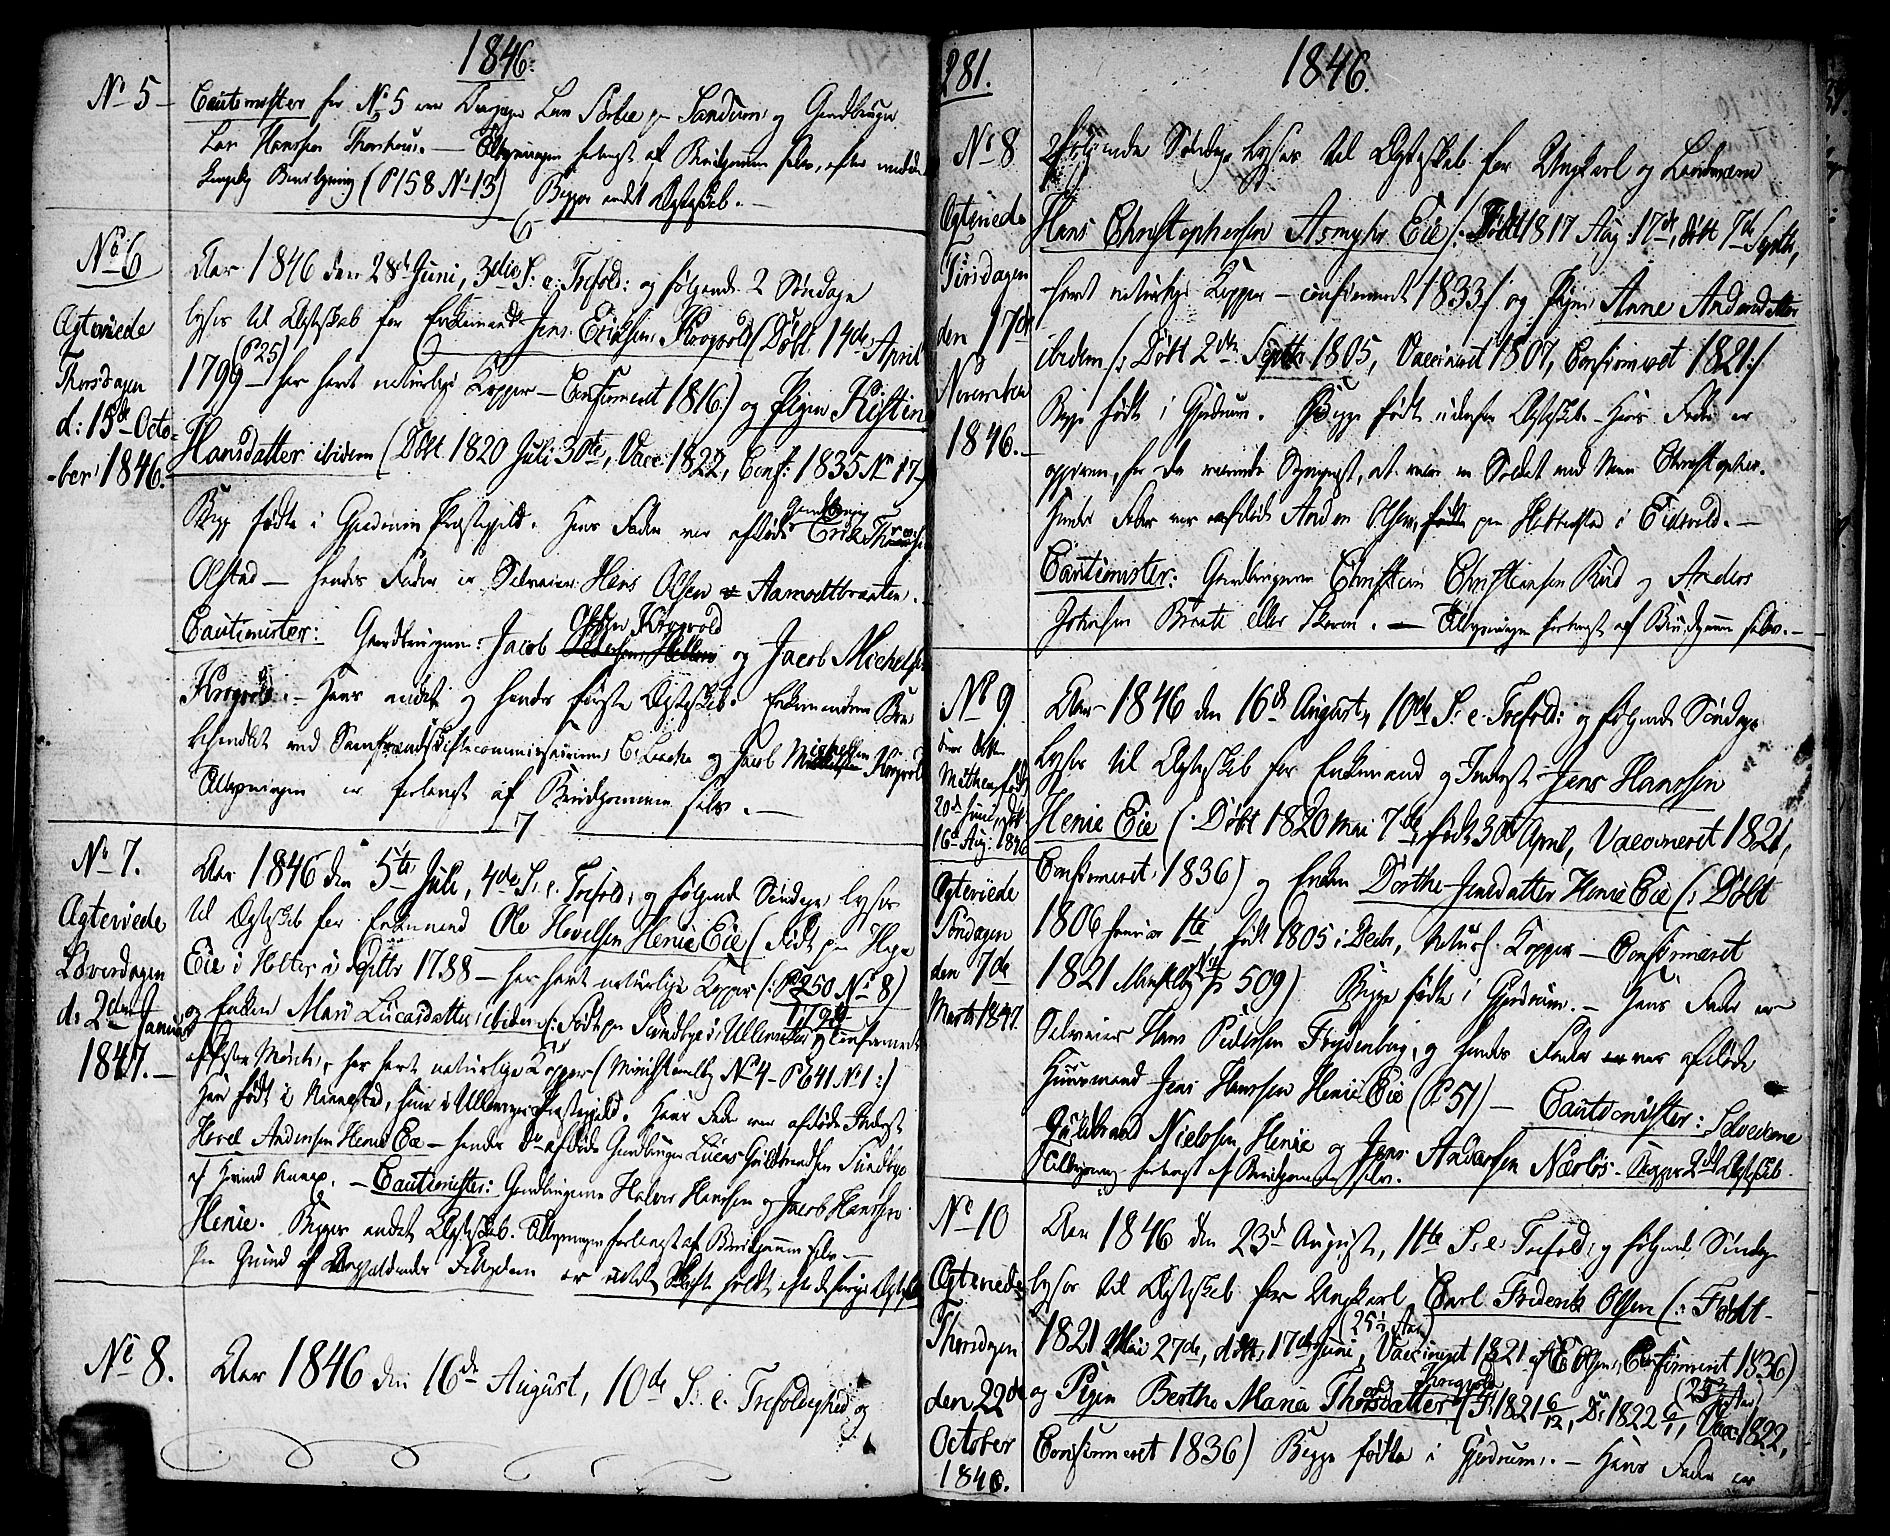 1846.
No 5
Cautionister for No 5 var Lars Sørlie paa Sandum og Gaardbruger
Lars Hanssen Thorshuus. — Tillysningen forlangt af Brudgommen selv, efter
Bevilgning (P 158 No 13) Begges andet Ægteskab. —
6
No 6
Ægteviede
Thorsdagen
d: 15de Octo-
-ber 1846.
Aar 1846 den 28de Juni, 3die S. e. Trefold: og følgende 2 Søndage
lyses til Ægteskab for Enkemand Jens Eriksen Krogvold (Døbt 14de April
1799 (P 25) — har havt naturlige Kopper — Confirmeret 1816) og Pigen Kistine
Hansdatter ibidem (Døbt 1820 Juli 30te, Vacc: 1822, Conf: 1835 No 17)
Begge fødte i Gjerdrum Præstegjeld. Hans Fader var afdøde Gaardbruger Erik
Olstad — hendes Fader er Selveier Hans Olsen Aamodtbraaten.
Cautionister: Gaardbrugerne Jacob Olsen Krogvold og Jacob Michelsen
Krogvold. — Hans andet og hendes første Ægteskab. Enkemanden
behandlet ved Samfrændskiftecommissairerne og Jacob Michelsen Krogvold
Tillysningen er forlangt af Brudgommen selv. —
7
No 7.
Ægteviede
Løverdagen
d: 2den Januar
1847. —
Aar 1846 den 5te Juli, 4de S. e. Trefold: og følgende Søndage lyses
til Ægteskab for Enkemand Ole Hovelsen Henie Eie (Født paa
Eie i Holter i Septbr 1788 — har havt naturlige Kopper (P 250 No 8)
og Enken Mari Lucasdatter ibidem (: Født paa Sundbye i Ullensager 1794 Confirmeret
af Mørch, har havt naturlige Kopper (Ministerialbog No 4 — P 641 No 1:)
Han født i Nannestad, hun i Ullensager Præstegjeld. Hans Fader var afdøde Inderst
Hovel Andersen Henie Eie — hendes do afdøde Gaardbruger Lucas Guldbrandsen Sundbye
— Cautionister: Gaardbrugerne Halvor Hanssen og Jacob Hanssen
Henie. Begges andet Ægteskab. Tillysningen forlangt af Brudgommen selv. —
Paa Grund af er intet Skifte holdt efter de forrige Ægtefæller
No 8.
Aar 1846 den 16de August, 10de S. e. Trefoldighed og
281.
1846.
No 8
Ægteviede
Tirsdagen
den 17de
November
1846. —
2 følgende Søndage lyses til Ægteskab for Ungkarl og Landværn
Hans Christophersen Asmyhr Eie (: Født 1817 Aug 17de, døbt 7de Septbr,
havt naturlige Kopper — confirmeret 1833 :/ og Pigen Anne Andersdatter
ibidem (: Døbt 2den Septbr 1805, Vaccineret 1807, Confirmeret 1821 :/
Begge fødte i Gjerdrum. Begge fødte udenfor Ægteskab. Hans Fader er
opgiven, at være en Soldat ved Navn Christopher.
Hendes Fader var afdøde Anders Olsen, paa Hatterstad i Eidsvold. —
Cautionister: Gaardbrugerne Christian Christiansen Rud og Anders
Johnsen Braate eller Skoven. — Tillysningen forlangt af Brudgommen selv. —
No 9.
20de Juni, døbt
16de Aug: 1846
Ægteviede
Søndagen
den 7de
Marts 1847.
Aar 1846 den 16de August, 10de S. e. Trefold: og følgende Søndage
lyses til Ægteskab for Enkemand og Inderst Jens Hanssen
Henie Eie (: Døbt 1820 Mai 7de, født 30te April, Vaccineret 1821,
Confirmeret 1836) og Enken Dorthe Jensdatter Henie Eie (: Døbt
1806 Januar 1te, født 1805 i Decbr, naturl. Kopper — Confirmeret
1821 P 509) Begge fødte i Gjerdrum. — Hans Fader er
Selveier Hans Pedersen Frydenberg, og hendes Fader var afdøde
Huusmand Jens Hanssen Henie Eie (P 51) — Cautionister: Selveierne
Guldbrand Nielssen Henie og Jens Andersen Nærløs. — Begges 2det Ægteskab.
Tillysning forlangt af Brudgommen selv.
No 10
Ægteviede
Thorsdagen
den 22de
October
1846.
Aar 1846 den 23de August, 11te S. e. Trefold: og følgende Søndage
lyses til Ægteskab for Ungkarl Carl Frederik Olsen (: Født
1821 Mai 27de, døbt 17de Juni, (25 1/4 Aar) Vaccineret 1821 Confirmeret 1836)
og Pigen Berthe Maria Thorsdatter Krogvold (F. 1821 6/12, D: 1822 6/1, (25 Aar) Vacc: 1822,
Confirmeret 1836) Begge fødte i Gjerdrum. — Hans Fader er